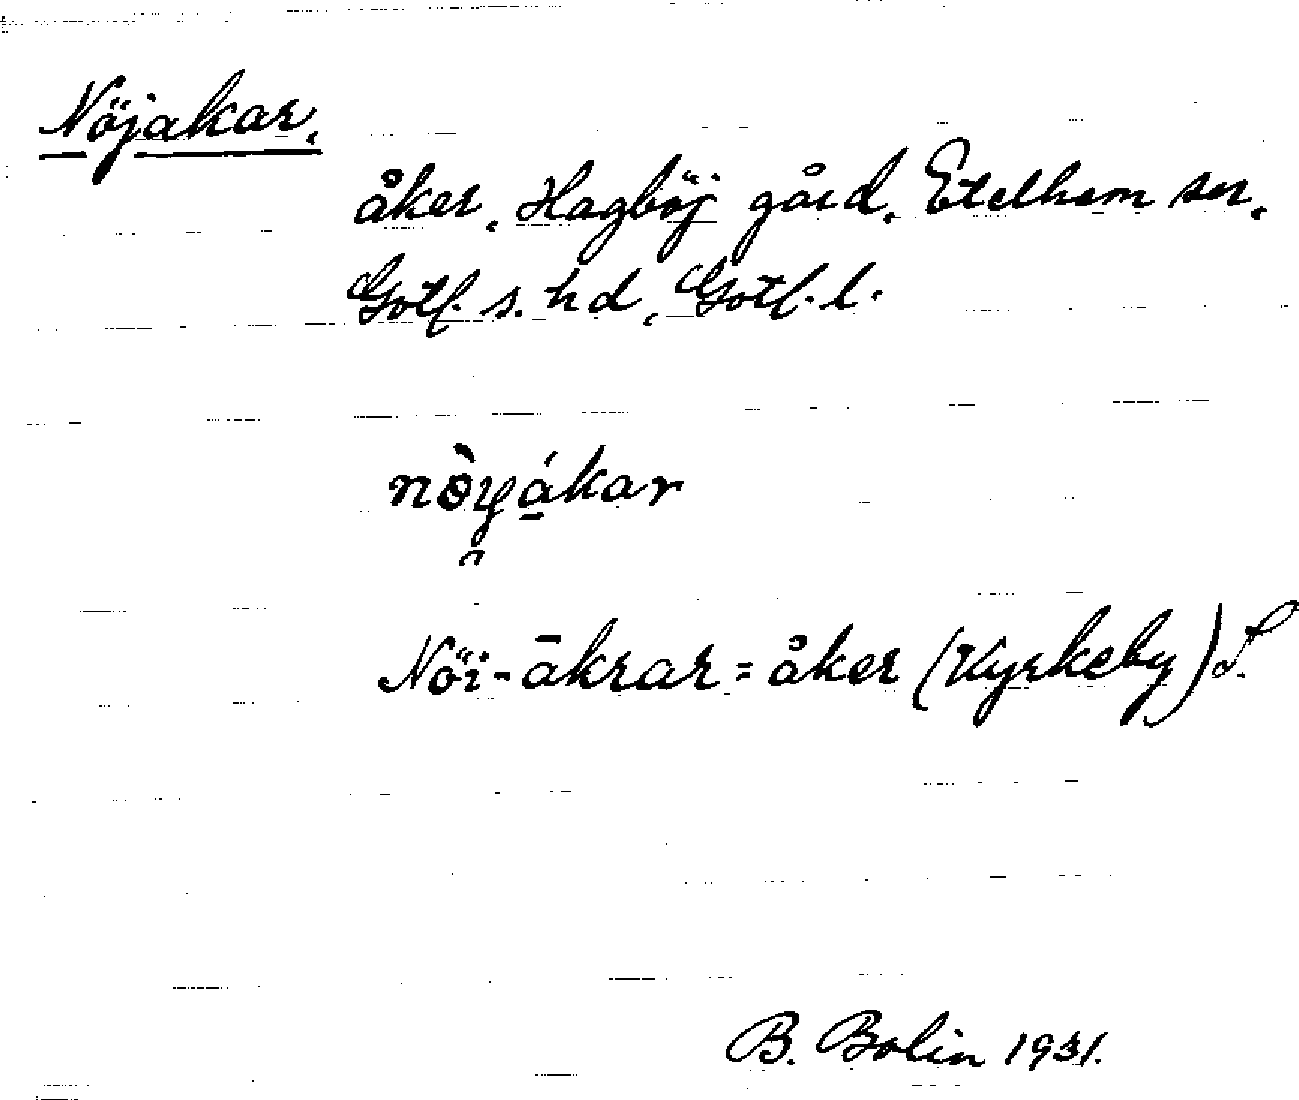 Nöjakar.
åker, Hagböj gård, Etelhem sn,
Gotl. s. hd, Gotl. l.
nòyákar
Nöi-ākrar = åker (Kyrkeby) S.
B. Bolin 1931.